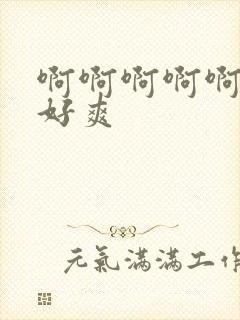 啊啊啊啊啊
好爽
元氣滿滿工作